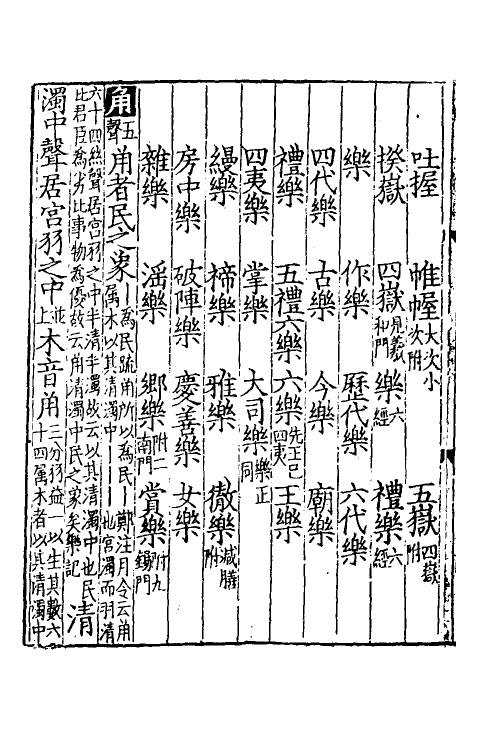 吐握 帷幄大次小次附 五嶽四嶽附
揆嶽 四嶽見義和門 樂六經 禮樂六經
樂 作樂 歷代樂 六代樂
四代樂 古樂 今樂 廟樂
禮樂 五禮六樂 六樂先王已四夷 王樂
四夷樂 掌樂 大司樂樂正同
縵樂 禘樂 雅樂 徹樂減膳附
房中樂 破陣樂 慶善樂 女樂
雜樂 淫樂 鄉樂附二南門 賞樂附九錫門
角五聲 角者民之象一為民䟽角所以為民一一鄭注月令云角屬木以其清濁中一一一一也宮濁而羽清
六十四絲聲居宮羽之中半清半濁故云以其清濁中也民比君臣為劣比事物為優故云角清濁中民之象矣樂記 清
濁中聲居宮羽之中並上 木音角三分羽益一以生其數六十四屬木者以其清濁中